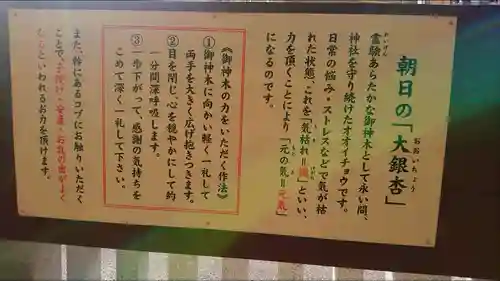 朝日の「大銀杏」
おおいちょう
霊験あらたかな御神木として永い間、
れいげん
神社を守り続けたオオイチョウです。
日常の悩み・ストレスなどで気が枯
れた状態、これを「気枯れ＝穢」といい、
力を頂くことにより「元の気＝元気」
になるのです。
《御神木の力をいただく作法》
①御神木に向かい軽く一礼して
両手を大きく広げ抱きつきます。
②目を閉じ、心を穏やかにして約
一分間深呼吸します。
③一歩下がって、感謝の気持ちを
こめて深く一礼して下さい。
また、幹にあるコブにお触りいただく
ことで、子授け・安産・お乳の出がよく
なるといわれるお力を頂けます。